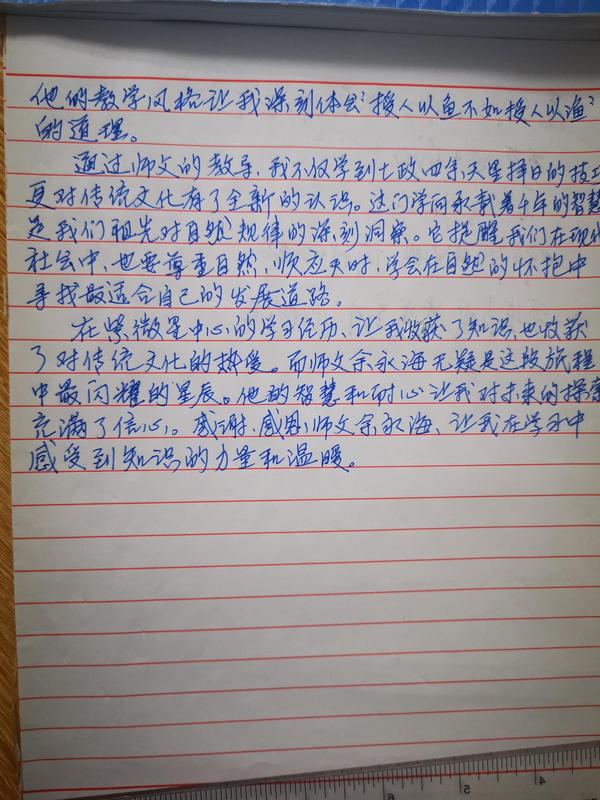 他的教学风格让我深刻体会“授人以鱼不如授人以渔”
的道理。
通过师父的教导，我不仅学到七政四余天星择日的技
更对传统文化有了全新的认识。这门学问承载着千年的智慧
是我们祖先对自然规律的深刻洞察。它提醒我们在现代
社会中，也要尊重自然，顺应天时，学会在自然的怀抱中
寻找最适合自己的发展道路。
在紫微星中心的学习经历，让我收获了知识，也收获
了对传统文化的热爱。而师父余永海无疑是这段旅程
中最闪耀的星辰。他的智慧和耐心让我对未来的探索
充满了信心。感谢、感恩师父余永海，让我在学习中
感受到知识的力量和温暖。
5
4